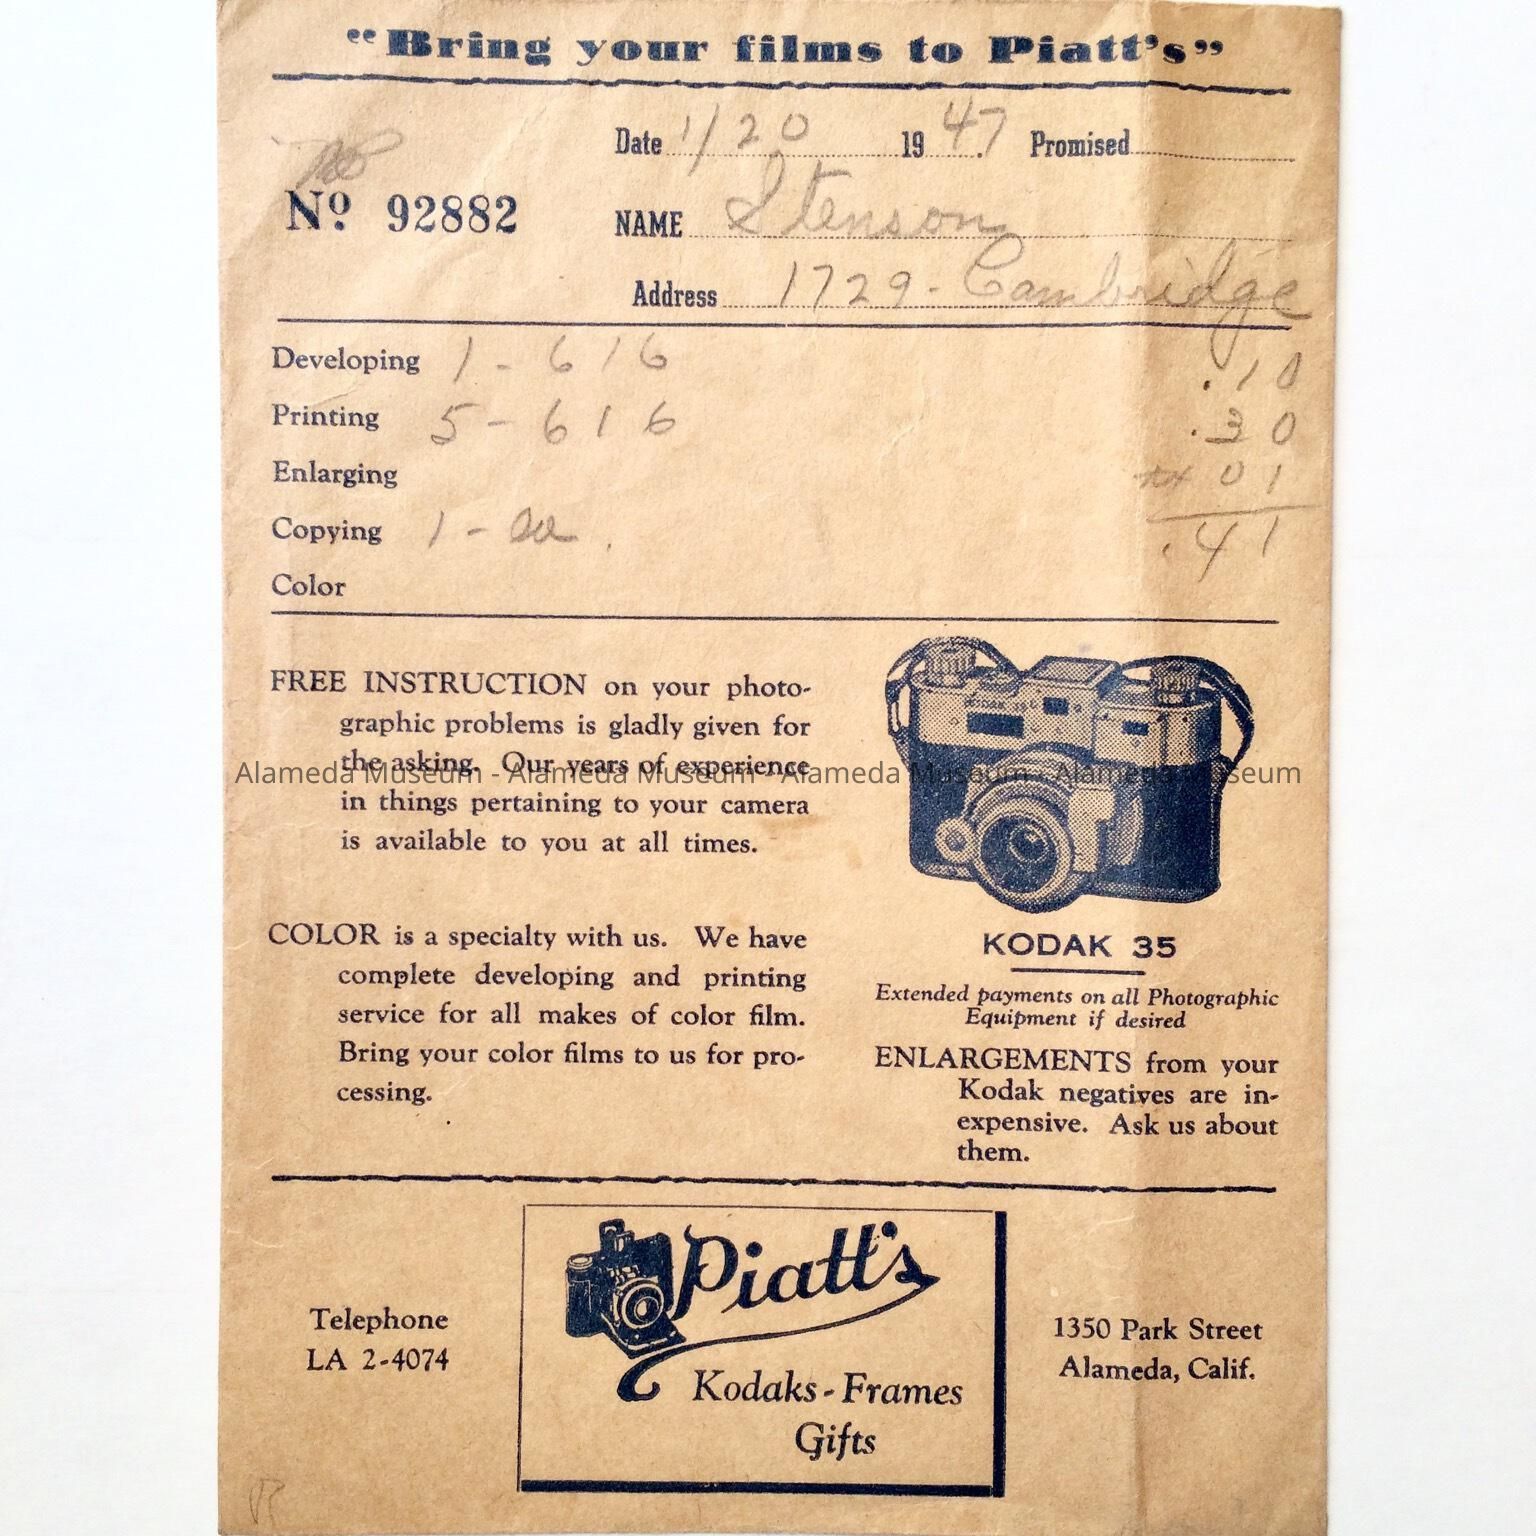 “Bring your films to Piatt's”
Date 1/20 1947 Promised
Nº 92882
NAME Stenson
Address 1729 - Cambridge
Developing 1 - 616 .10
Printing 5 - 616 .30
Enlarging tx 01
Copying 1 -
.41
Color
FREE INSTRUCTION on your photo-
graphic problems is gladly given for
the asking. Our years of experience
in things pertaining to your camera
is available to you at all times.
COLOR is a specialty with us. We have
complete developing and printing
service for all makes of color film.
Bring your color films to us for pro-
cessing.
KODAK 35
Extended payments on all Photographic
Equipment if desired
ENLARGEMENTS from your
Kodak negatives are in-
expensive. Ask us about
them.
Alameda Museum - Alameda Museum - Alameda Museum - Alameda Museum
Telephone
LA 2-4074
Piatt's
Kodaks - Frames
Gifts
1350 Park Street
Alameda, Calif.